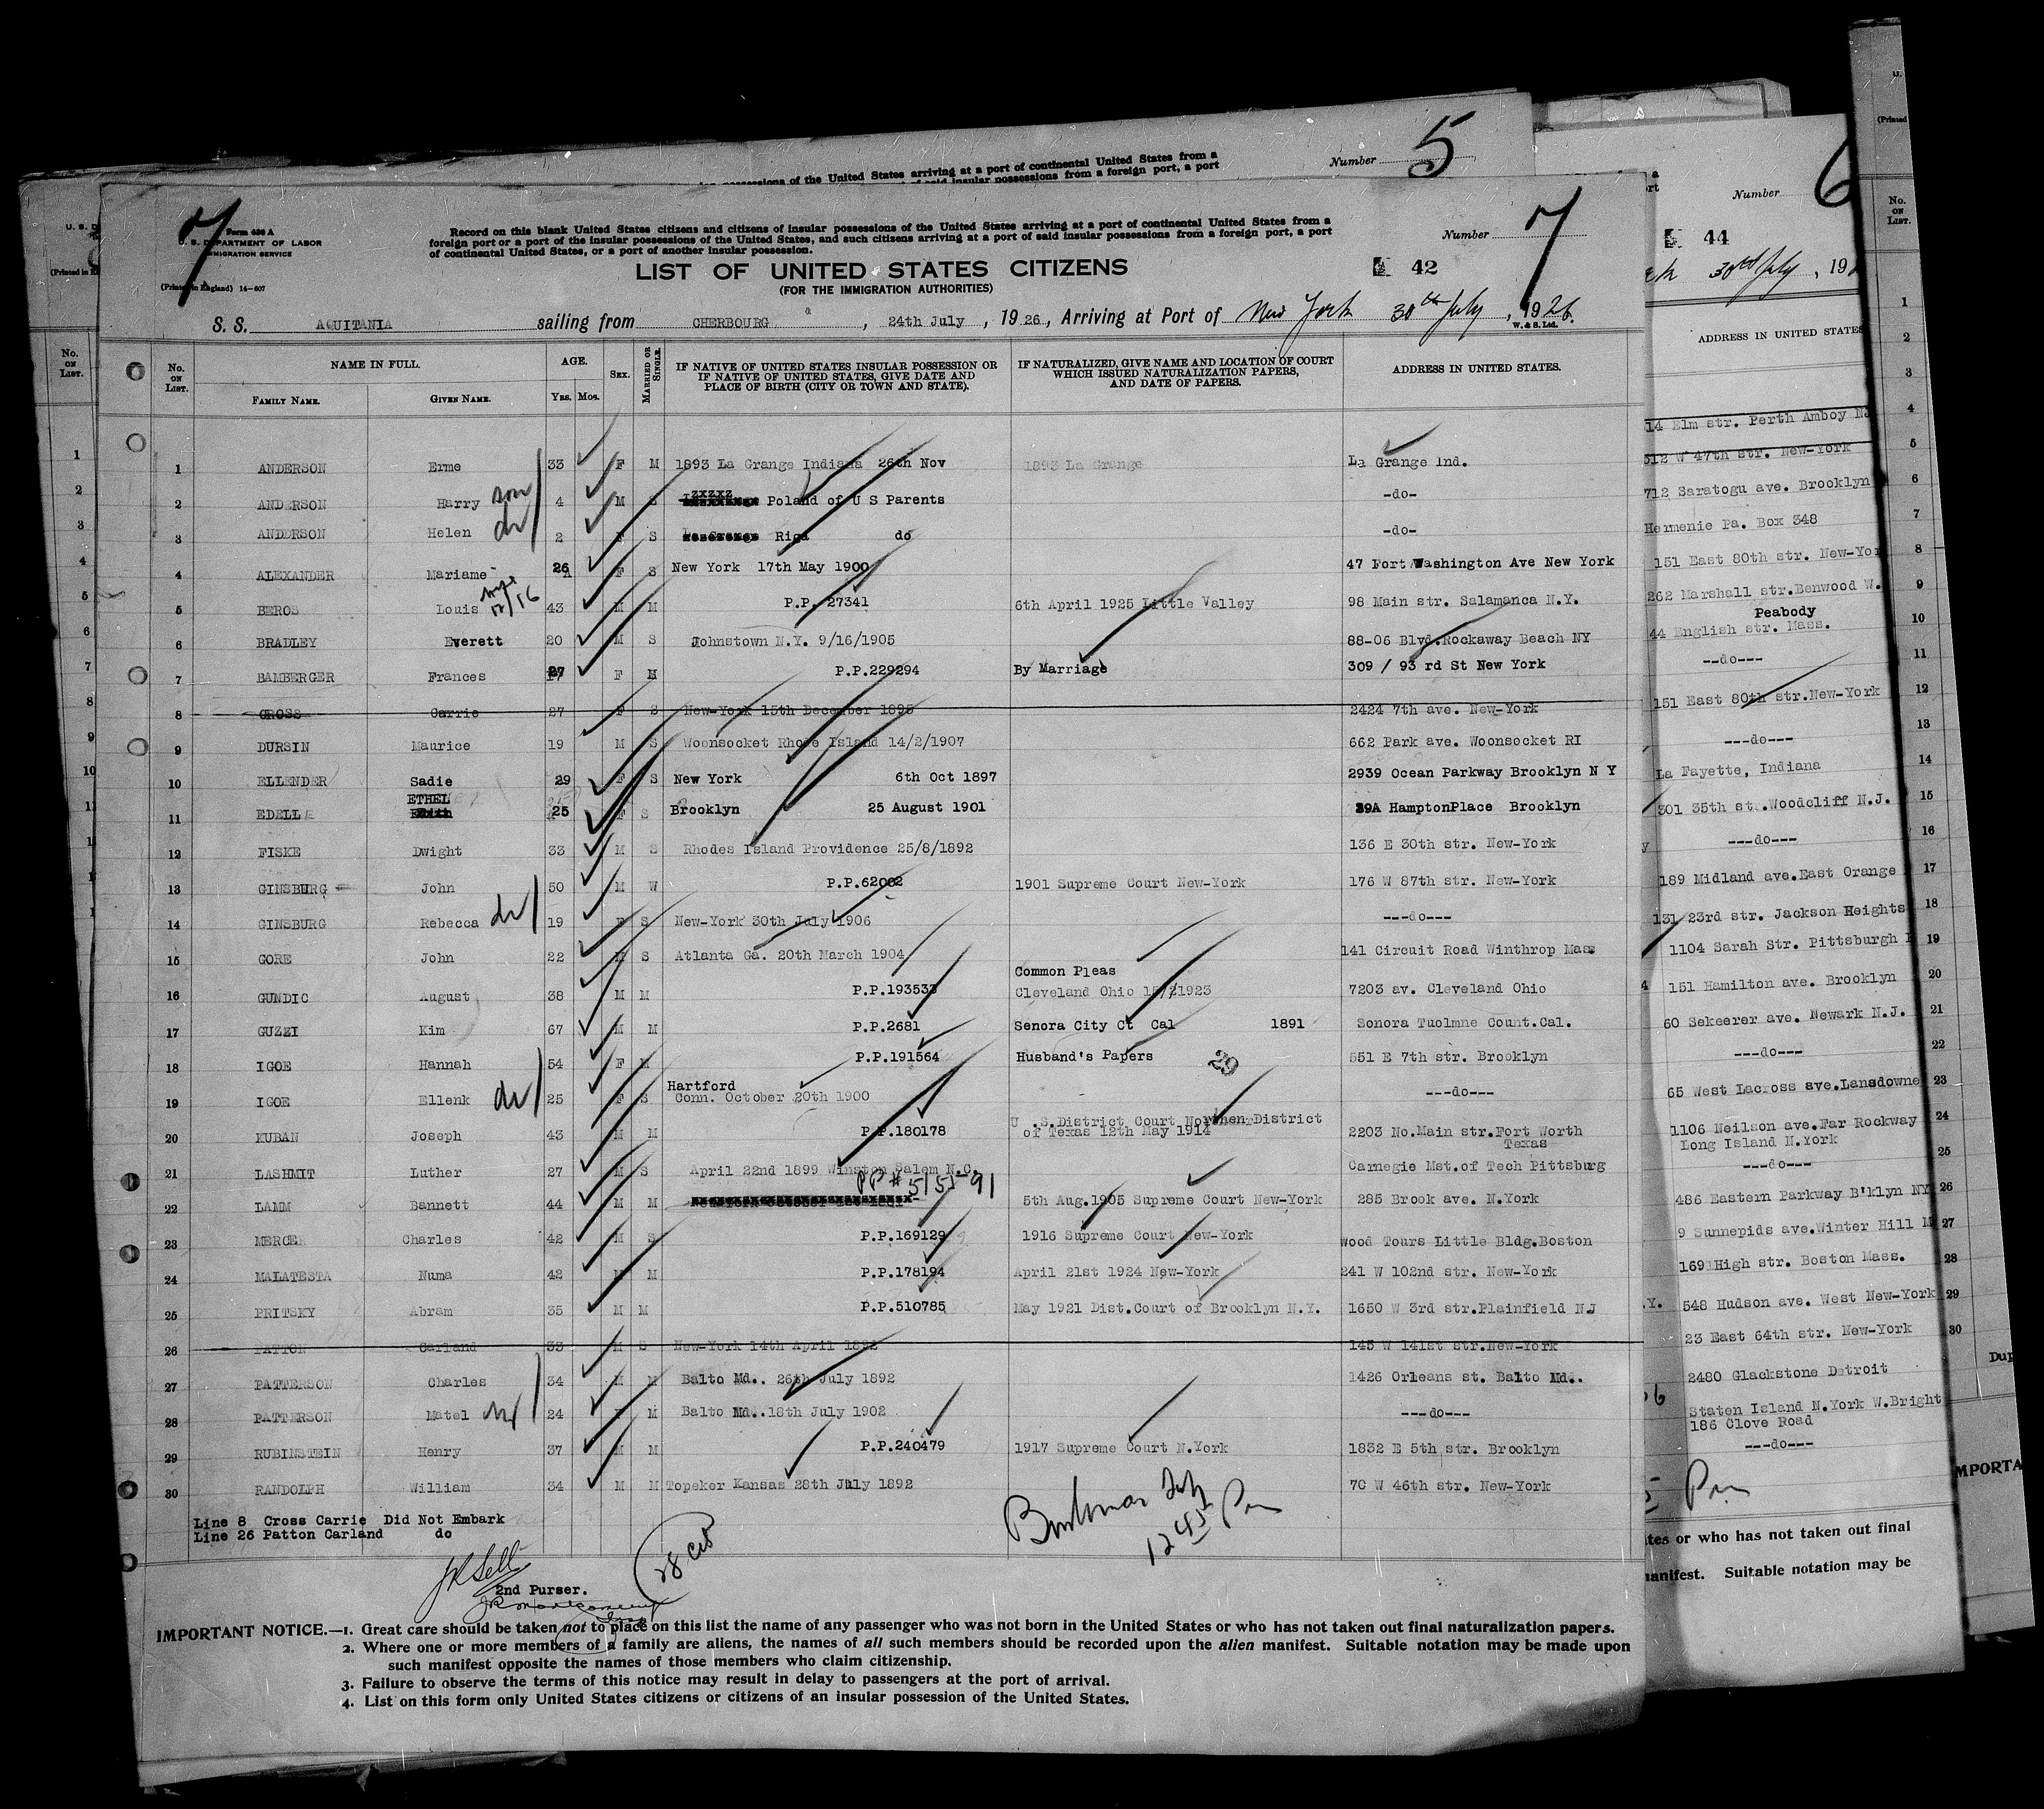 Number 5
Number 6
7
7
Form 630 A
U. S. DEPARTMENT OF LABOR
IMMIGRATION SERVICE
(Printed in England) 14-607
Record on this blank United States citizens and citizens of insular possessions of the United States arriving at a port of continental United States from a
foreign port or a port of the insular possessions of the United States, and such citizens arriving at a port of said insular possessions from a foreign port, a port
of continental United States, or a port of another insular possession.
Number
LIST OF UNITED STATES CITIZENS
(FOR THE IMMIGRATION AUTHORITIES)
42
S. S. AQUITANIA sailing from CHERBOURG, 24th July, 1926, Arriving at Port of New York 30th July, 1926.
W. & S. Ltd.
No. ON LIST. NAME IN FULL. AGE. SEX. MARRIED OR SINGLE. IF NATIVE OF UNITED STATES INSULAR POSSESSION OR IF NATIVE OF UNITED STATES, GIVE DATE AND PLACE OF BIRTH (CITY OR TOWN AND STATE). IF NATURALIZED, GIVE NAME AND LOCATION OF COURT WHICH ISSUED NATURALIZATION PAPERS, AND DATE OF PAPERS. ADDRESS IN UNITED STATES.
FAMILY NAME. GIVEN NAME. YRS. MOS.
1 ANDERSON Erme 33 F M 1893 La Grange Indiana 26th Nov 1893 La Grange La Grange Ind.
2 ANDERSON Harry son 4 M S Poland of U S Parents -do-
3 ANDERSON Helen dr 2 F S Riga do -do-
4 ALEXANDER Mariame 26 F S New York 17th May 1900 47 Fort Washington Ave New York
5 BEROS Louis 43 M M P.P. 27341 6th April 1925 Little Valley 98 Main str. Salamanca N.Y.
6 BRADLEY Everett 20 M S Johnstown N.Y. 9/16/1905 88-06 Blvd.Rockaway Beach NY
7 BAMBERGER Frances 27 F M P.P.229294 By Marriage 309 / 93 rd St New York
8 CROSS Carrie 27 F S New-York 15th December 1898 2424 7th ave. New-York
9 DURSIN Maurice 19 M S Woonsocket Rhode Island 14/2/1907 662 Park ave. Woonsocket RI
10 ELLENDER Sadie 29 F S New York 6th Oct 1897 2939 Ocean Parkway Brooklyn N Y
11 EDELL ETHEL 25 F S Brooklyn 25 August 1901 29A HamptonPlace Brooklyn
12 FISKE Dwight 33 M S Rhodes Island Providence 25/8/1892 136 E 30th str. New-York
13 GINSBURG John 50 M W P.P.62002 1901 Supreme Court New-York 176 W 87th str. New-York
14 GINSBURG Rebecca dr 19 F S New-York 30th July 1906 ---do---
15 GORE John 22 M S Atlanta Ga. 20th March 1904 141 Circuit Road Winthrop Mass
16 GUNDIC August 38 M M P.P.193533 Common Pleas Cleveland Ohio 7203 av. Cleveland Ohio
17 GUZZI Kim 67 M M P.P.2681 Senora City Ct Cal 1891 Sonora Tuolmne Count.Cal.
18 IGOE Hannah 54 F M P.P.191564 Husband's Papers 29 551 E 7th str. Brooklyn
19 IGOE Ellenk dr 25 F S Hartford Conn. October 20th 1900 ---do---
20 KUBAN Joseph 43 M M P.P.180178 U .S.District Court Northen District of Texas 12th May 1914 2203 No.Main str.Fort Worth Texas
21 LASHMIT Luther 27 M S April 22nd 1899 Winston Salem N.C. Carnegie Mst.of Tech Pittsburg
22 LAMM Bannett 44 M M PP # 515591 5th Aug.1905 Supreme Court New-York 285 Brook ave. N.York
23 MERCER Charles 42 M S P.P.169129 1916 Supreme Court New-York Wood Tours Little Bldg.Boston
24 MALATESTA Numa 42 M M P.P.178194 April 21st 1924 New-York 241 W 102nd str. New-York
25 PRITSKY Abram 35 M M P.P.510785 May 1921 Dist.Court of Brooklyn N.Y. 1650 W 3rd str.Plainfield NJ
26 PATTON Carland 33 M S New-York 14th April 1892 145 W 141st str.New-York
27 PATTERSON Charles 34 M M Balto Md.. 26th July 1892 1426 Orleans st. Balto Md..
28 PATTERSON Matel 24 F M Balto Md..18th July 1902 ---do---
29 RUBINSTEIN Henry 37 M M P.P.240479 1917 Supreme Court N.York 1832 E 5th str. Brooklyn
30 RANDOLPH William 34 M M Topeker Kansas 28th July 1892 70 W 46th str. New-York
Line 8 Cross Carrie Did Not Embark
Line 26 Patton Carland do
12 45 Pm
28
2nd Purser.
IMPORTANT NOTICE.—1. Great care should be taken not to place on this list the name of any passenger who was not born in the United States or who has not taken out final naturalization papers.
2. Where one or more members of a family are aliens, the names of all such members should be recorded upon the alien manifest. Suitable notation may be made upon
such manifest opposite the names of those members who claim citizenship.
3. Failure to observe the terms of this notice may result in delay to passengers at the port of arrival.
4. List on this form only United States citizens or citizens of an insular possession of the United States.
44
30th July, 19
ADDRESS IN UNITED STATES
14 Elm str. Perth Amboy NJ
512 W 47th str. New-York
712 Saratogu ave. Brooklyn
Hermenie Pa. Box 348
151 East 80th str. New-Yor
262 Marshall str.Benwood W.
Peabody
44 English str. Mass.
--do---
151 East 80th str.New-York
---do---
La Fayette, Indiana
301 35th st.Woodcliff N.J.
---do---
189 Midland ave.East Orange
131 23rd str. Jackson Heights
1104 Sarah Str. Pittsburgh
151 Hamilton ave. Brooklyn
60 Sekeerer ave. Newark N.J.
---do---
65 West Lacross ave.Lansdowne
1106 Neilson ave.Far Rockway
Long Island N.York
---do---
486 Eastern Parkway B'klyn NY
9 Sunnepids ave.Winter Hill M
169 High str. Boston Mass.
548 Hudson ave. West New-York
23 East 64th str. New-York
2480 Glackstone Detroit
Staten Island N.York W.Bright
186 Clove Road
---do---
Pm
tes or who has not taken out final
manifest. Suitable notation may be